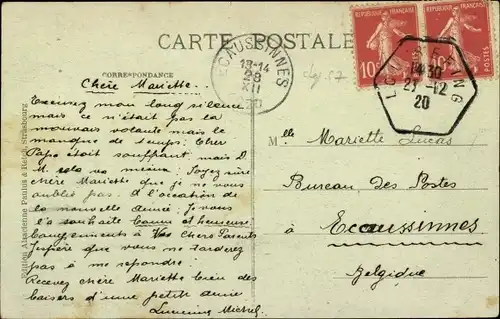 CARTE POSTALE
CORRESPONDANCE
Chère Mariette.
Excusez mon long silence
mais ce n'était pas la
mauvaise volonté mais le
manque de temps: Cher
Papa était souffrant mais D.
M. cela va mieux: Soyez sûre
chère Mariette que je ne vous
oublie pas. à l'occasion de
la nouvelle année je vous
la souhaite Bonne et heureuse
Compliments à Vos Chers Parents
J'espère que vous ne tarderez
pas à me repondre.
Recevez chère Mariette bien des
baisers d'une petite amie
Lucienne Michel
Edition Alsacienne Paulus & Heise, Strasbourg
ECAUSSINNES
13-14
28
XII
20
REPUBLIQUE FRANÇAISE
10c
REPUBLIQUE FRANÇAISE
10c
1430
27-12
20
Mlle Mariette Lucas
Bureau des Postes
à Ecaussinnes
Belgique